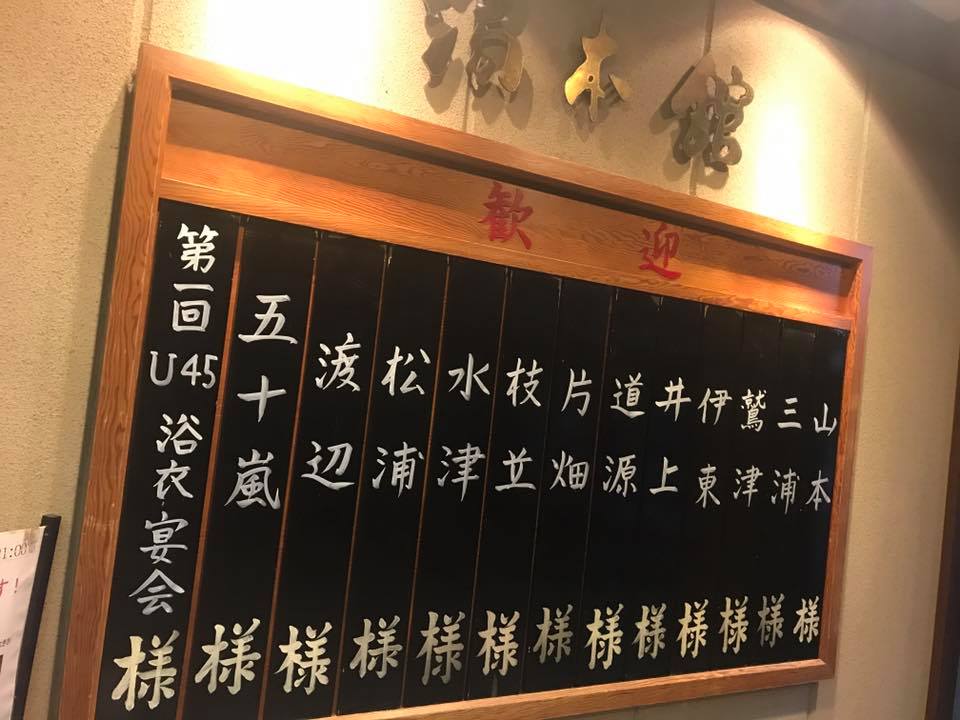 本館
歓迎
山本様
三浦様
鷲津様
伊東様
井上様
道源様
片畑様
枝並様
水津様
松浦様
渡辺様
五十嵐様
第一回U45浴衣宴会様
1:00
す!